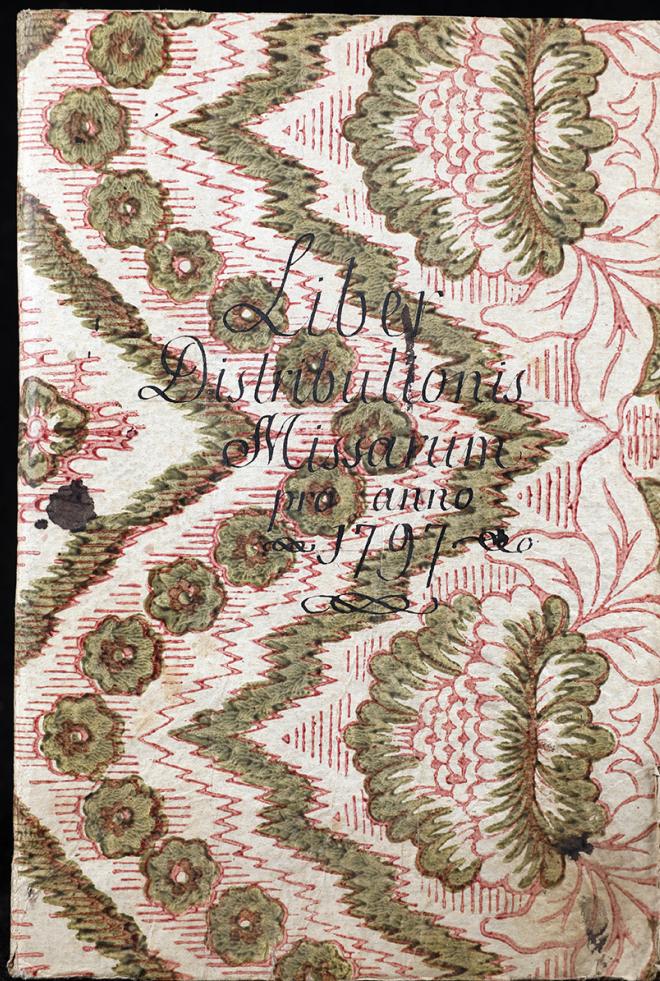 Liber
Distributionis
Missarum
pro anno
1797